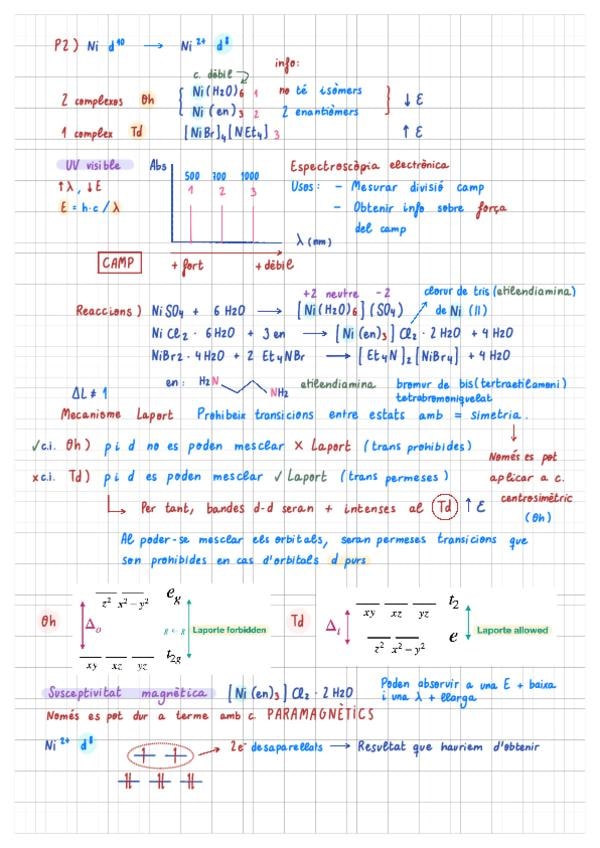 P2) Ni d¹⁰ → Ni²⁺ d⁸
info:
c. dèbil
2 complexos Oh { Ni(H2O)6 1 no té isòmers } ↓ Ɛ
Ni(en)3 2 2 enantiòmers
1 complex Td [NiBr]4[NEt4] 3 ↑ Ɛ
UV visible Abs Espectroscòpia electrònica
500 700 1000
↑λ, ↓E 1 2 3 Usos: - Mesurar divisió camp
E = h·c / λ - Obtenir info sobre força
del camp
λ (nm)
CAMP + fort + dèbil
+2 neutre -2 clorur de tris(etilendiamina)
Reaccions) NiSO4 + 6 H2O → [Ni(H2O)6](SO4) de Ni (II)
NiCl2 · 6H2O + 3 en → [Ni(en)3]Cl2 · 2 H2O + 4 H2O
NiBr2 · 4H2O + 2 Et4NBr → [Et4N]2[NiBr4] + 4 H2O
en: H2N NH2 etilendiamina bromur de bis(tertraetilamoni)
tetrabromoniquelat
ΔL ≠ 1
Mecanisme Laport Prohibeix transicions entre estats amb = simetria.
✓c.i. Oh) p i d no es poden mesclar × Laport (trans prohibides)
Només es pot
×c.i. Td) p i d es poden mesclar ✓ Laport (trans permeses)
aplicar a c.
centrosimètric
(Oh)
Per tant, bandes d-d seran + intenses al Td ↑ Ɛ
Al poder-se mesclar els orbitals, seran permeses transicions que
són prohibides en cas d'orbitals d purs
Oh z² x²−y² eg Td xy xz yz t2
Δo g ↔ g Laporte forbidden Δt Laporte allowed
xy xz yz t2g z² x²−y² e
Susceptivitat magnètica [Ni(en)3]Cl2 · 2 H2O Poden absorvir a una E + baixa
i una λ + llarga
Només es pot dur a terme amb c. PARAMAGNÈTICS
Ni²⁺ d⁸ 2e⁻ desaparellats → Resultat que hauriem d'obtenir